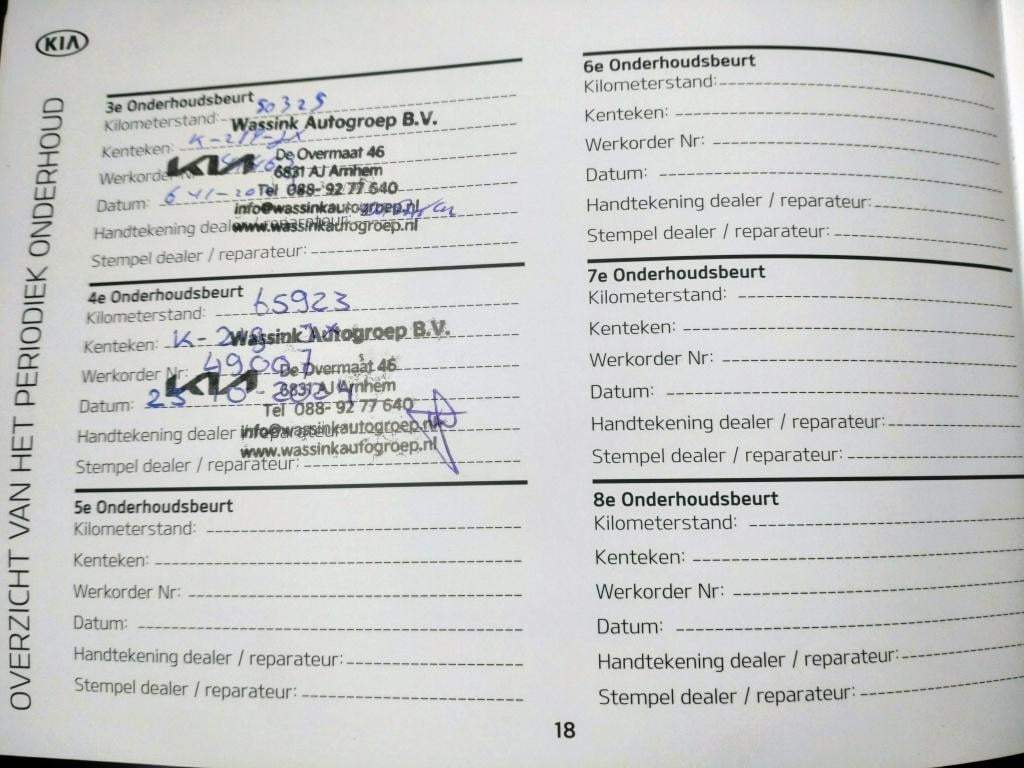 KIA
OVERZICHT VAN HET PERIODIEK ONDERHOUD
3e Onderhoudsbeurt
Kilometerstand: 50325
Wassink Autogroep B.V.
Kenteken:
KIA De Overmaat 46
Werkorder Nr:
6831 AJ Arnhem
Datum:
Tel 088- 92 77 640
info@wassinkautogroep.nl
Handtekening dealer / reparateur:
www.wassinkautogroep.nl
Stempel dealer / reparateur:
4e Onderhoudsbeurt
Kilometerstand: 65923
Wassink Autogroep B.V.
Kenteken:
Werkorder Nr: 49007
KIA De Overmaat 46
6831 AJ Arnhem
Datum:
Tel 088- 92 77 640
Handtekening dealer / reparateur:
info@wassinkautogroep.nl
www.wassinkautogroep.nl
Stempel dealer / reparateur:
5e Onderhoudsbeurt
Kilometerstand:
Kenteken:
Werkorder Nr:
Datum:
Handtekening dealer / reparateur:
Stempel dealer / reparateur:
6e Onderhoudsbeurt
Kilometerstand:
Kenteken:
Werkorder Nr:
Datum:
Handtekening dealer / reparateur:
Stempel dealer / reparateur:
7e Onderhoudsbeurt
Kilometerstand:
Kenteken:
Werkorder Nr:
Datum:
Handtekening dealer / reparateur:
Stempel dealer / reparateur:
8e Onderhoudsbeurt
Kilometerstand:
Kenteken:
Werkorder Nr:
Datum:
Handtekening dealer / reparateur:
Stempel dealer / reparateur:
18